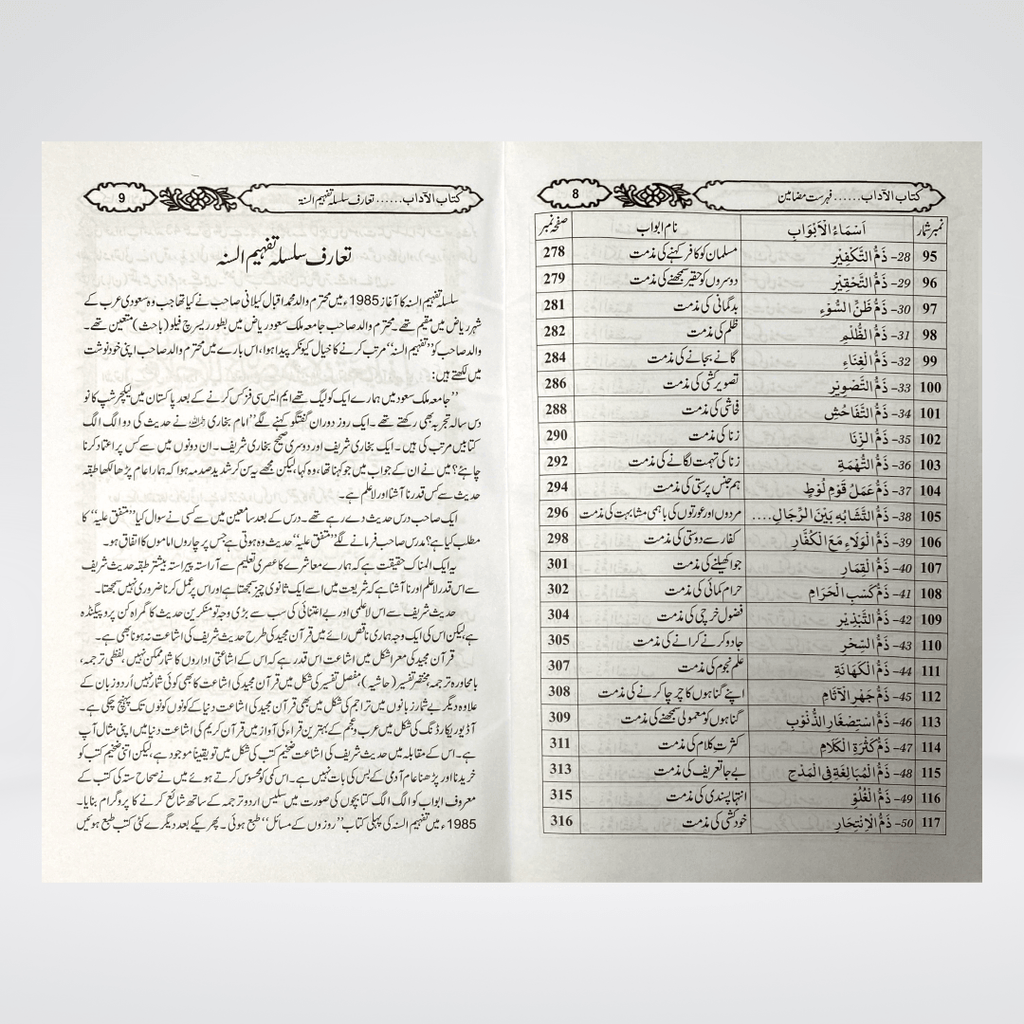 کتاب الآداب...... فہرست مضامین
8
نمبر شمار اَسْمَاءُ الْاَبْوَابِ نام ابواب صفحہ نمبر
95 28- ذَمُّ التَّكْفِيْرِ مسلمان کو کافر کہنے کی مذمت 278
96 29- ذَمُّ التَّحْقِيْرِ دوسروں کو حقیر سمجھنے کی مذمت 279
97 30- ذَمُّ ظَنِّ السُّوْءِ بدگمانی کی مذمت 281
98 31- ذَمُّ الظُّلْمِ ظلم کی مذمت 282
99 32- ذَمُّ الْغِنَاءِ گانے بجانے کی مذمت 284
100 33- ذَمُّ التَّصْوِيْرِ تصویر کشی کی مذمت 286
101 34- ذَمُّ التَّفَاحُشِ فحاشی کی مذمت 288
102 35- ذَمُّ الزِّنَا زنا کی مذمت 290
103 36- ذَمُّ التُّهْمَةِ زنا کی تہمت لگانے کی مذمت 292
104 37- ذَمُّ عَمَلِ قَوْمِ لُوْطٍ ہم جنس پرستی کی مذمت 294
105 38- ذَمُّ التَّشَابُهِ بَيْنَ الرِّجَالِ.... مردوں اور عورتوں کی باہمی مشابہت کی مذمت 296
106 39- ذَمُّ الْوَلَاءِ مَعَ الْكُفَّارِ کفار سے دوستی کی مذمت 298
107 40- ذَمُّ الْقِمَارِ جوا کھیلنے کی مذمت 301
108 41- ذَمُّ كَسْبِ الْحَرَامِ حرام کمائی کی مذمت 302
109 42- ذَمُّ التَّبْذِيْرِ فضول خرچی کی مذمت 304
110 43- ذَمُّ السِّحْرِ جادو کرنے کرانے کی مذمت 305
111 44- ذَمُّ الْكَهَانَةِ علم نجوم کی مذمت 307
112 45- ذَمُّ جَهْرِ الْآثَامِ اپنے گناہوں کا چرچا کرنے کی مذمت 308
113 46- ذَمُّ اسْتِصْغَارِ الذُّنُوْبِ گناہوں کو معمولی سمجھنے کی مذمت 309
114 47- ذَمُّ كَثْرَةِ الْكَلَامِ کثرت کلام کی مذمت 311
115 48- ذَمُّ الْمُبَالِغَةِ فِى الْمَدْحِ بے جا تعریف کی مذمت 313
116 49- ذَمُّ الْغُلُوِّ انتہا پسندی کی مذمت 315
117 50- ذَمُّ الْاِنْتِحَارِ خودکشی کی مذمت 316
کتاب الآداب...... تعارف سلسلہ تفہیم السنۃ
9
تعارف سلسلہ تفہیم السنہ
سلسلہ تفہیم السنہ کا آغاز 1985ء میں محترم والد محمد اقبال کیلانی صاحب نے کیا تھا جب وہ سعودی عرب کے
شہر ریاض میں مقیم تھے۔ محترم والد صاحب جامعہ ملک سعود ریاض میں بطور ریسرچ فیلو (باحث) متعین تھے۔
والد صاحب کو ”تفہیم السنہ“ مرتب کرنے کا خیال کیونکر پیدا ہوا، اس بارے میں محترم والد صاحب اپنی خود نوشت
میں لکھتے ہیں:
”جامعہ ملک سعود میں ہمارے ایک کولیگ تھے ایم ایس سی فزکس کرنے کے بعد پاکستان میں لیکچر شپ کا نو
دس سالہ تجربہ بھی رکھتے تھے۔ ایک روز دوران گفتگو کہنے لگے ”امام بخاری رحمہ اللہ نے حدیث کی دو الگ الگ
کتابیں مرتب کی ہیں۔ ایک بخاری شریف اور دوسری صحیح بخاری شریف۔ ان دونوں میں سے کس پر اعتماد کرنا
چاہئے؟ میں نے ان کے جواب میں جو کہنا تھا، وہ کہا، لیکن مجھے یہ سن کر شدید صدمہ ہوا کہ ہمارا عام پڑھا لکھا طبقہ
حدیث سے کس قدر نا آشنا اور لاعلم ہے۔
ایک صاحب درس حدیث دے رہے تھے۔ درس کے بعد سامعین میں سے کسی نے سوال کیا ”متفق علیہ“ کا
مطلب کیا ہے؟ مدرس صاحب فرمانے لگے ”متفق علیہ“ حدیث وہ ہوتی ہے جس پر چاروں اماموں کا اتفاق ہو۔
یہ ایک المناک حقیقت ہے کہ ہمارے معاشرے کا عصری تعلیم سے آراستہ پیراستہ بیشتر طبقہ حدیث شریف
سے اس قدر لاعلم اور نا آشنا ہے کہ شریعت میں اسے ایک ثانوی چیز سمجھتا ہے اور اس پر عمل کرنا ضروری نہیں سمجھتا۔
حدیث شریف سے اس لاعلمی اور بے اعتنائی کی سب سے بڑی وجہ تو منکرین حدیث کا گمراہ کن پروپیگنڈہ
ہے، لیکن اس کی ایک وجہ ہماری ناقص رائے میں قرآن مجید کی طرح حدیث شریف کی اشاعت نہ ہونا بھی ہے۔
قرآن مجید کی معرا شکل میں اشاعت اس قدر ہے کہ اس کے اشاعتی اداروں کا شمار ممکن نہیں، لفظی ترجمہ،
با محاورہ ترجمہ، مختصر تفسیر (حاشیہ)، مفصل تفسیر کی شکل میں قرآن مجید کی اشاعت کا بھی کوئی شمار نہیں اُردو زبان کے
علاوہ دیگر بے شمار زبانوں میں تراجم کی شکل میں بھی قرآن مجید کی اشاعت دنیا کے کونوں کونوں تک پہنچ چکی ہے۔
آڈیو ریکارڈنگ کی شکل میں عرب و عجم کے بہترین قراء کی آواز میں قرآن کریم کی اشاعت دنیا میں اپنی مثال آپ
ہے۔ اس کے مقابلہ میں حدیث شریف کی اشاعت ضخیم کتب کی شکل میں تو یقیناً موجود ہے، لیکن اتنی ضخیم کتب کو
خریدنا اور پڑھنا عام آدمی کے بس کی بات نہیں ہے۔ اس کمی کو محسوس کرتے ہوئے میں نے صحاح ستہ کی کتب کے
معروف ابواب کو الگ الگ کتابچوں کی صورت میں سلیس اردو ترجمہ کے ساتھ شائع کرنے کا پروگرام بنایا۔
1985ء میں تفہیم السنہ کی پہلی کتاب ”روزوں کے مسائل“ طبع ہوئی۔ پھر یکے بعد دیگرے کئی کتب طبع ہوئیں